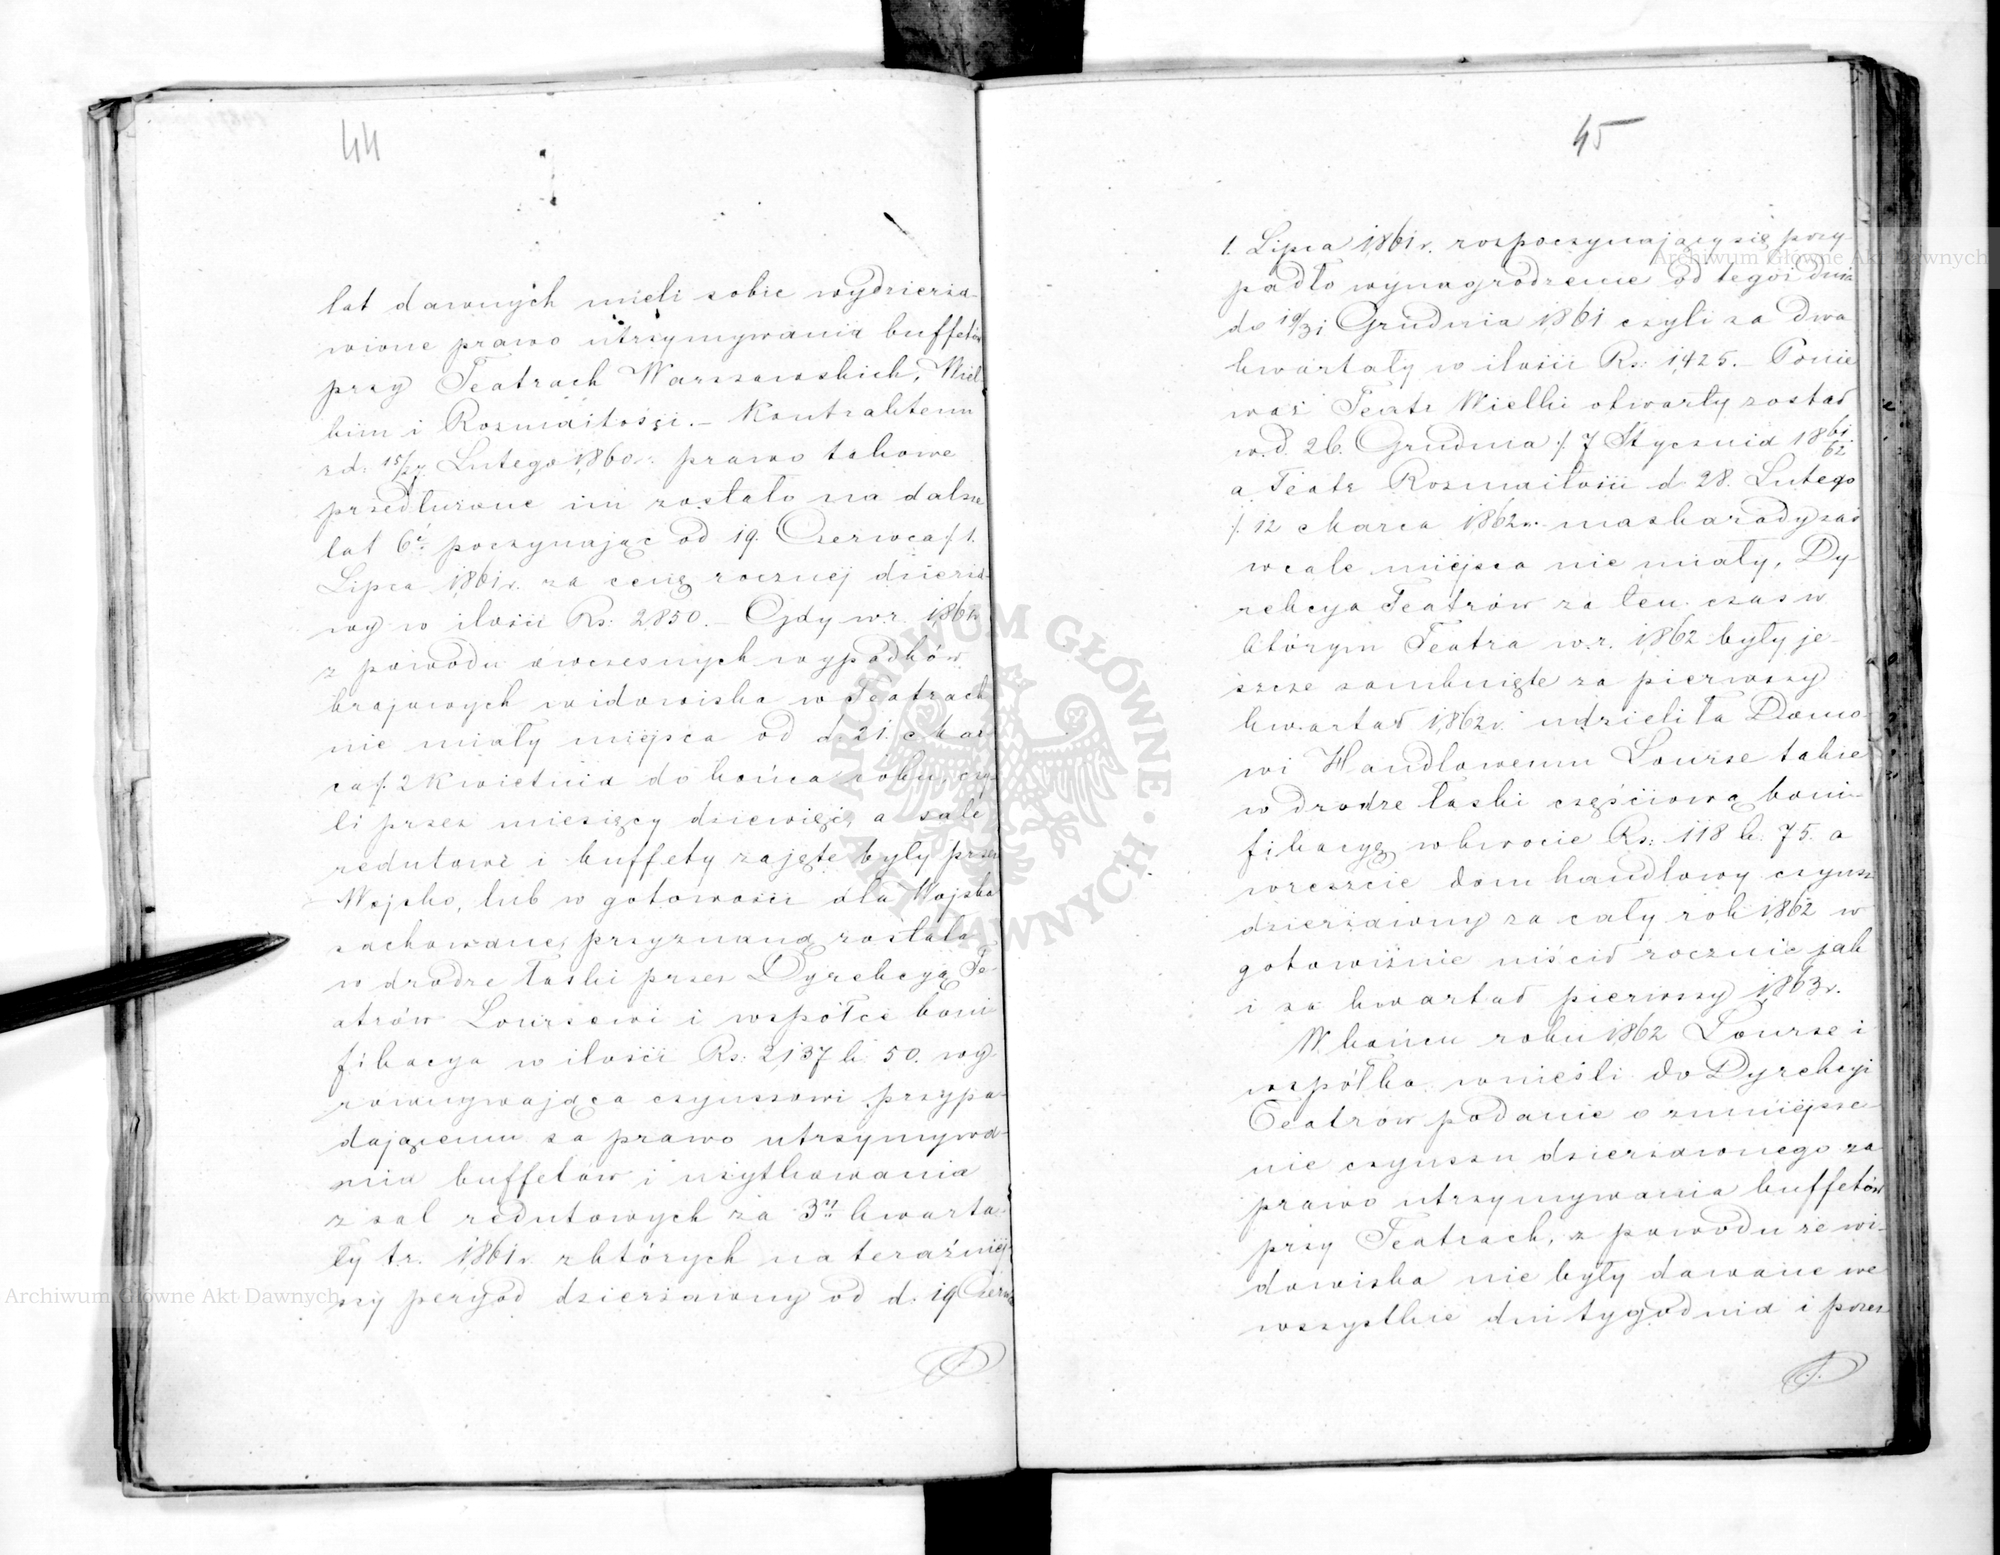 44
lat dawnych mieli sobie wydzierża-
wione prawo utrzymywania buffetów
przy Teatrach Warszawskich, Wiel-
kim i Rozmaitości. – Kontraktem
zd: 15/27 Lutego 1860 r. prawo takowe
przedłużone im zostało na dalsze
lat 6ć poczynając od 19. Czerwca /. 1.
Lipca 1861 r. za cenę rocznej dzierża-
wy w ilości Rs: 2850. – Gdy w r. 1861
z powodu ówczesnych wypadków
krajowych widowiska w Teatrach
nie miały miejsca od d. 21. Mar-
ca /. 2 Kwietnia do końca roku, czy-
li przez miesięcy dziewięć, a sale
redutowe i buffety zajęte były przez
Wojsko, lub w gotowości dla Wojska
zachowane, przyznaną została
w drodze łaski przez Dyrekcyą Te-
atrów Loursowi i współce boni-
fikacya w ilości Rs: 2137 k. 50. wy-
rownywająca czynszowi przypa-
dającemu za prawo utrzymywa-
nia buffetów i użytkowania
z sal redutowych za 3y kwarta-
ły tr. 1861 r. z których na teraźniej-
szy peryod dzierżawny od d. 19 Czerwca
45
1. Lipca 1861 r. rozpoczynający się przy-
padło wynagrodzenie od tegoż dnia
do 19/31 Grudnia 1861 czyli za dwa
kwartały w ilości Rs: 1,425. – Ponie-
waż Teatr Wielki otwarty został
w d. 26. Grudnia /. 7 Stycznia 1861/62
a Teatr Rozmaitości d. 28. Lutego
/. 12 Marca 1862 r. maskarady zaś
wcale miejsca nie miały, Dy-
rekcya Teatrów za ten czas w
którym Teatra w r. 1862 były je-
szcze zamknięte za pierwszy
kwartał 1862 r. udzieliła Domo-
wi Handlowemu Lourse takie
w drodze łaski częściową boni-
fikacyę w kwocie Rs: 118 k. 75. a
wreszcie dom handlowy czynsz
dzierżawny za cały rok 1862 w
gotowiźnie uiścił rocznie jak
i za kwartał pierwszy 1863 r.
W końcu roku 1862 Lourse i
współka wnieśli do Dyrekcyi
Teatrów podanie o zmniejsze-
nie czynszu dzierżawnego za
prawo utrzymywania buffetów
przy Teatrach, z powodu że wi-
dowiska nie były dawane we
wszystkie dni tygodnia i przez
Archiwum Główne Akt Dawnych
Archiwum Główne Akt Dawnych
ARCHIWUM GŁÓWNE AKT DAWNYCH